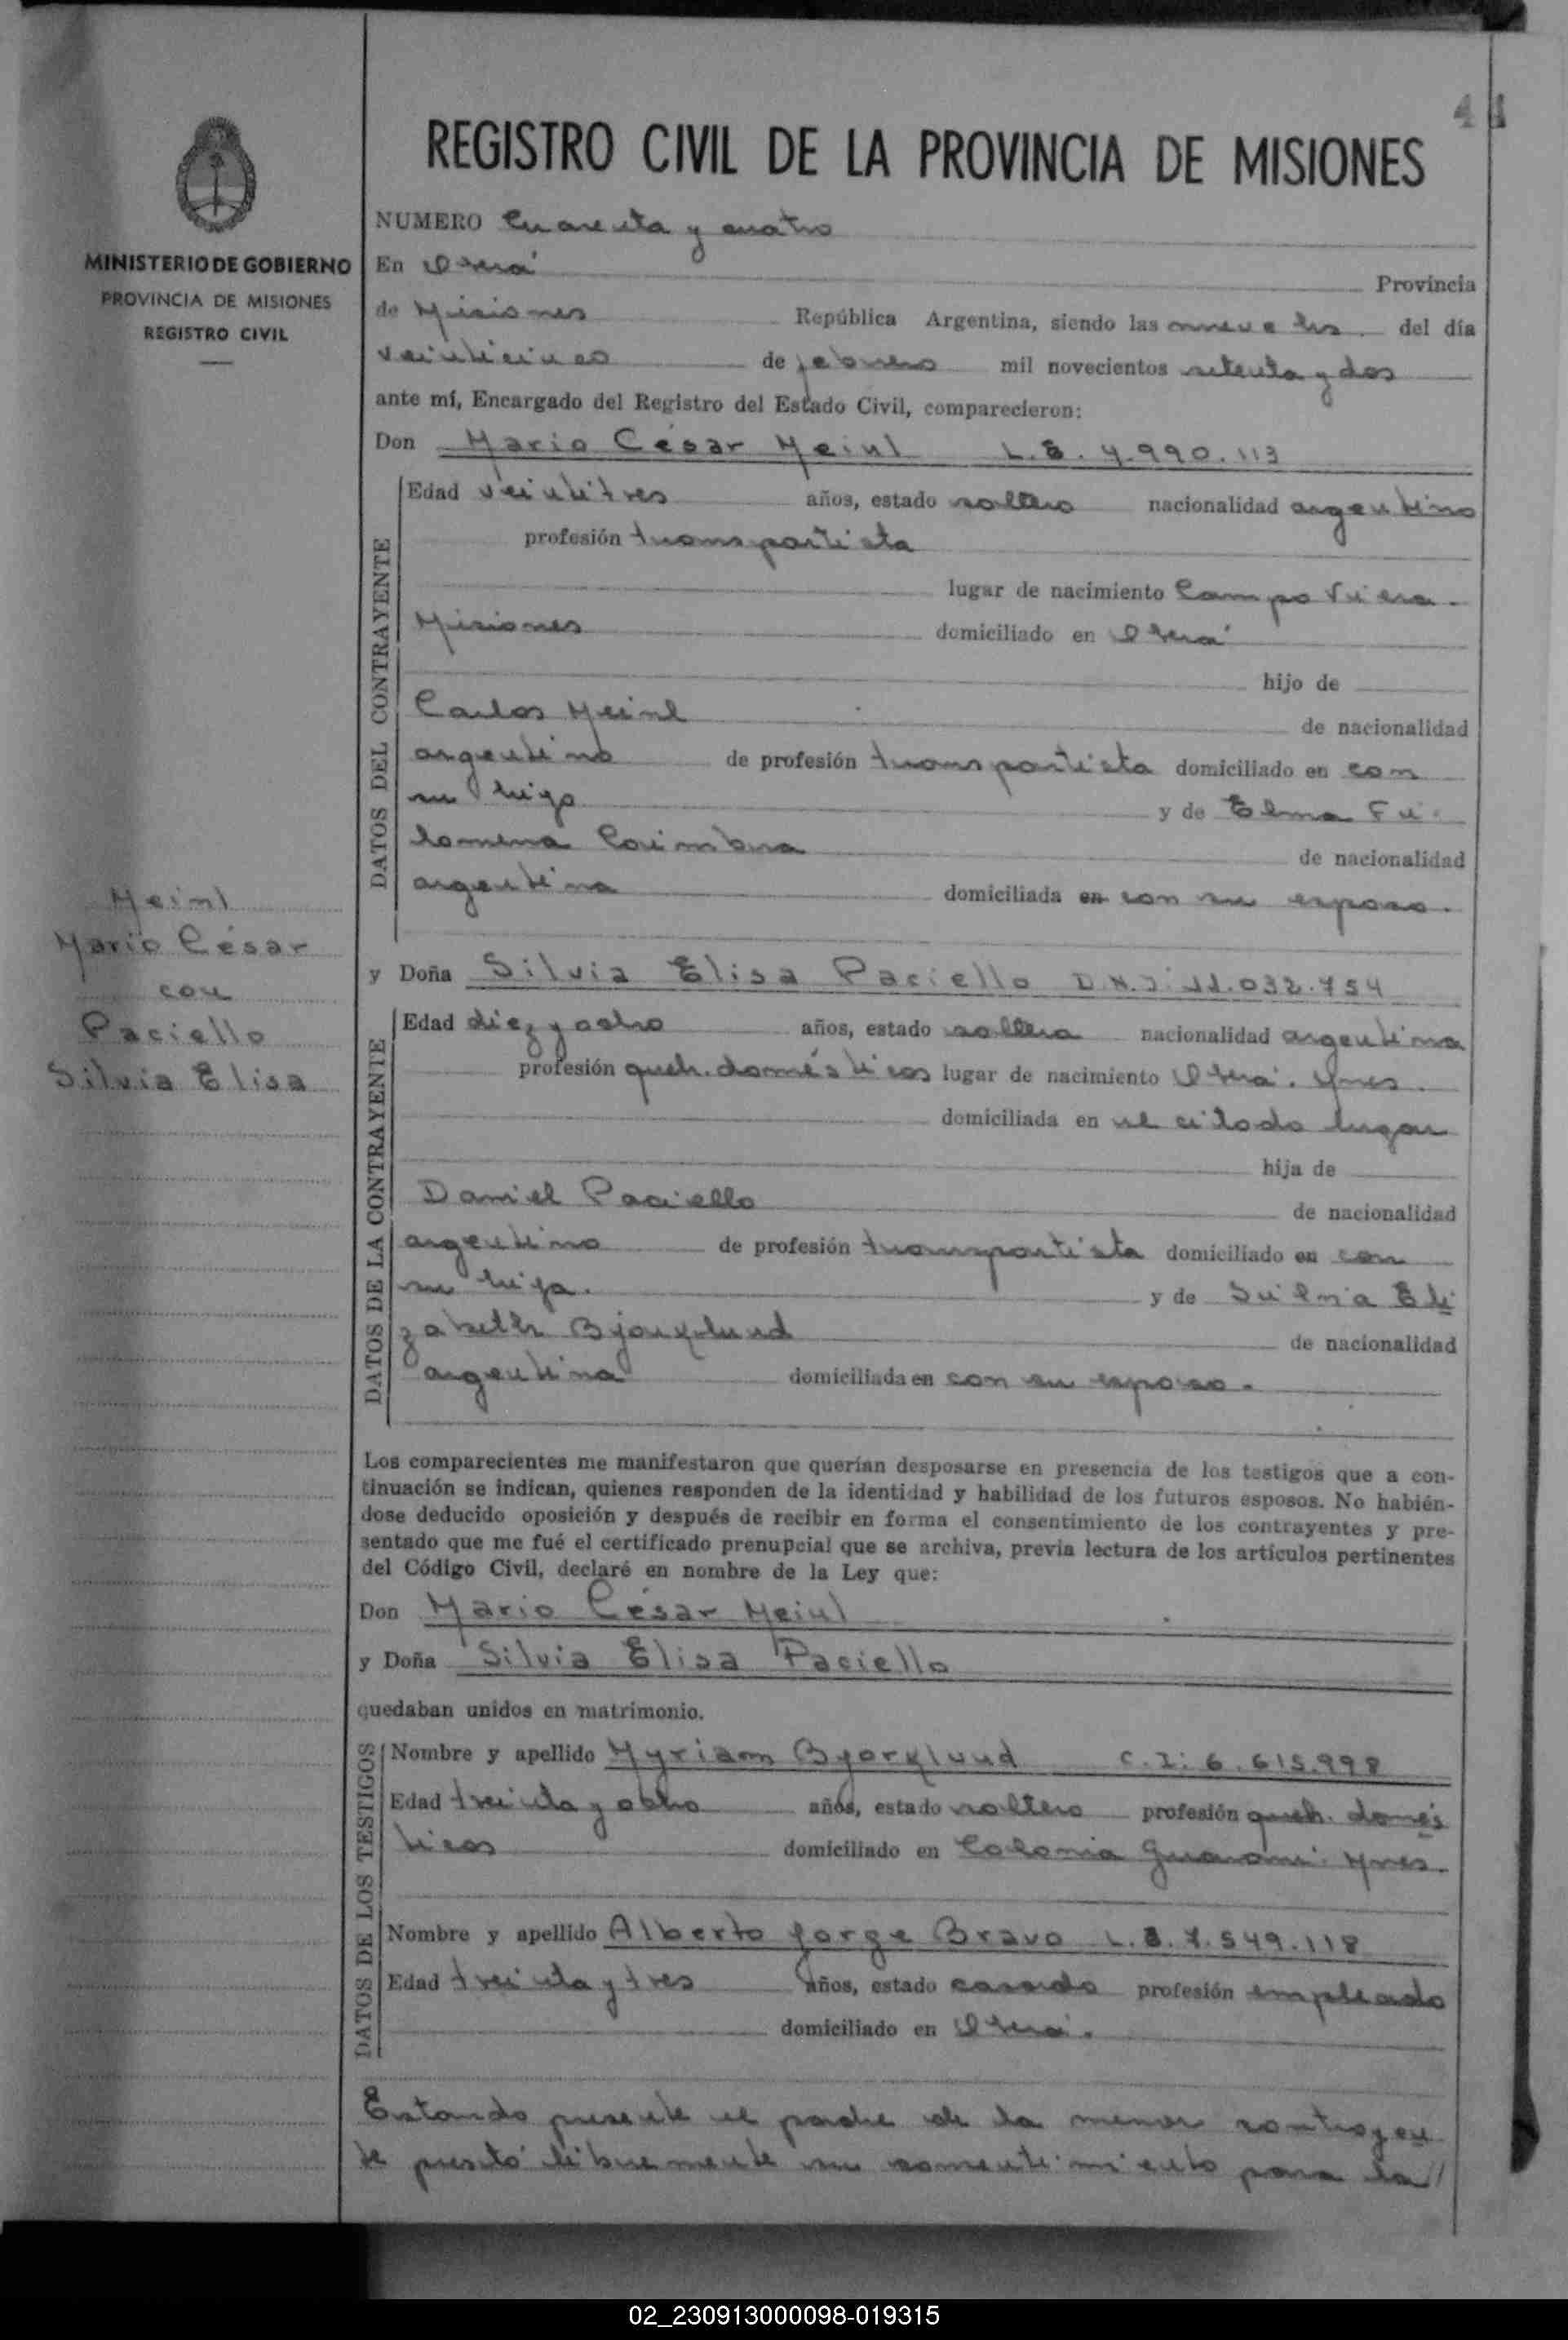 44
REGISTRO CIVIL DE LA PROVINCIA DE MISIONES
MINISTERIO DE GOBIERNO
PROVINCIA DE MISIONES
REGISTRO CIVIL
Meinl
Mario César
con
Paciello
Silvia Elisa
NUMERO Cuarenta y cuatro
En Oberá Provincia
de Misiones República Argentina, siendo las nueve hs. del día
veinticinco de febrero mil novecientos setenta y dos
ante mí, Encargado del Registro del Estado Civil, comparecieron:
Don Mario César Meinl L.E. 4.990.113
DATOS DEL CONTRAYENTE
Edad veintitres años, estado soltero nacionalidad argentino
profesión transportista
lugar de nacimiento Campo Viera.
Misiones domiciliado en Oberá
hijo de
Carlos Meinl de nacionalidad
argentino de profesión transportista domiciliado en con
su hijo y de Elma Fi-
lomena Coimbra de nacionalidad
argentina domiciliada en con su esposo.
y Doña Silvia Elisa Paciello D.N.I: 11.032.754
DATOS DE LA CONTRAYENTE
Edad diez y ocho años, estado soltera nacionalidad argentina
profesión queh. domésticos lugar de nacimiento Oberá. Mnes.
domiciliada en el citado lugar
hija de
Daniel Paciello de nacionalidad
argentino de profesión transportista domiciliado en con
su hija. y de Eli
zabeth Bjorklund de nacionalidad
argentina domiciliada en con su esposo.
Los comparecientes me manifestaron que querían desposarse en presencia de los testigos que a con-
tinuación se indican, quienes responden de la identidad y habilidad de los futuros esposos. No habién-
dose deducido oposición y después de recibir en forma el consentimiento de los contrayentes y pre-
sentado que me fué el certificado prenupcial que se archiva, previa lectura de los artículos pertinentes
del Código Civil, declaré en nombre de la Ley que:
Don Mario César Meinl
y Doña Silvia Elisa Paciello
quedaban unidos en matrimonio.
DATOS DE LOS TESTIGOS
Nombre y apellido Myriam Bjorklund C.I: 6.615.998
Edad treinta y ocho años, estado soltero profesión queh. domés
ticos domiciliado en Colonia Guaraní Mnes.
Nombre y apellido Alberto Jorge Bravo L.E. 7.549.118
Edad treinta y tres años, estado casado profesión empleado
domiciliado en Oberá.
Estando presente el padre de la menor contrayen
te prestó libremente su consentimiento para la //
02_230913000098-019315